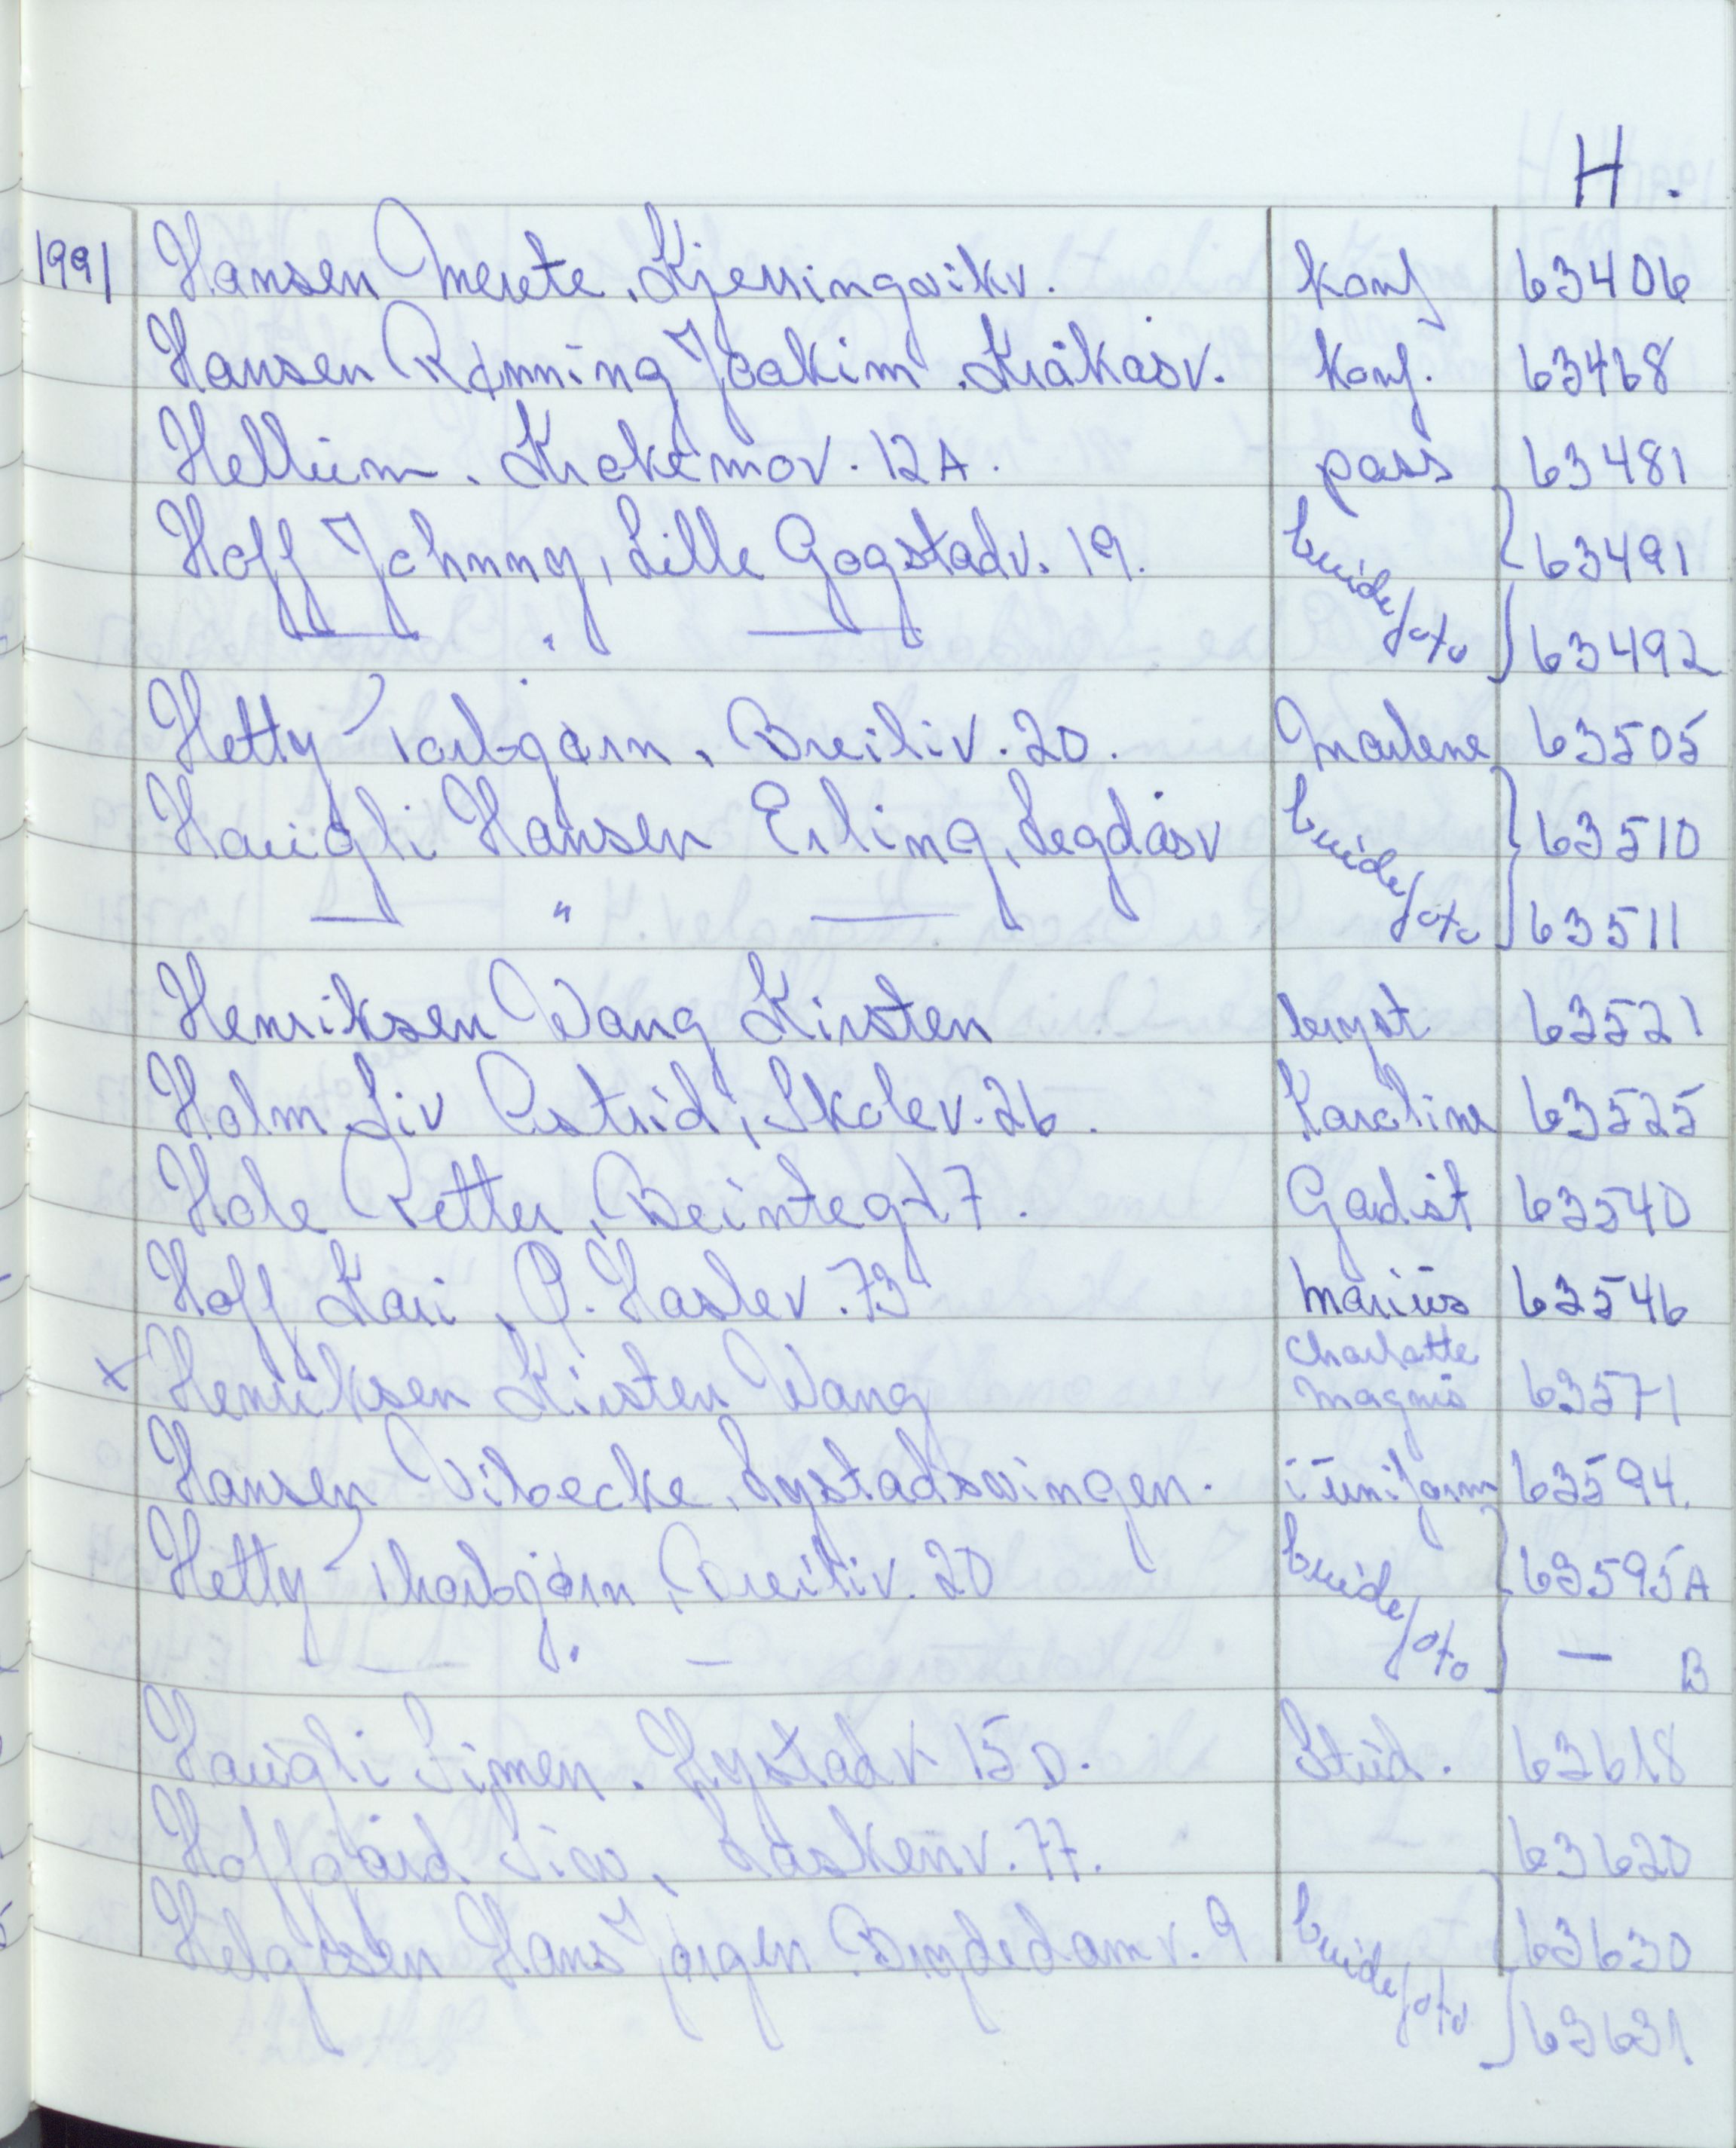 H.
1991 Hansen Merete, Kjerringvikv. konf 63406
Hansen Rønning Joakim, Kråkåsv. konf. 63468
Hellum, Krokemov. 12A. pass 63481
Hoff Johnny, Lille Gogstadv. 19. brudefoto 63491
— " — 63492
Hetty Torbjørn, Breiliv. 20. Marlene 63505
Haugli Hansen Erling, Legdåsv brudefoto 63510
— " — 63511
Henriksen Wang Kirsten bryst 63521
Holm Liv Astrid, Skolev. 26. Karoline 63525
Hole Petter, Beintegt 7. Gadist 63540
Hoff Kari, P. Haslev. 73 Marius 63546
Charlotte
x Henriksen Kirsten Wang Magnus 63571
Hansen Vibecke, Lystadsvingen. i uniform 63594.
Hetty Thorbjørn, Breiliv. 20 brudefoto 63595A
— " — — B
Haugli Simen. Hystadv. 15D. Stud. 63618
Hoffgård Siw, Laskenv. 77. 63620
Helgesen Hans Jørgen Brydedamv. 9 brudefoto 63630
63631